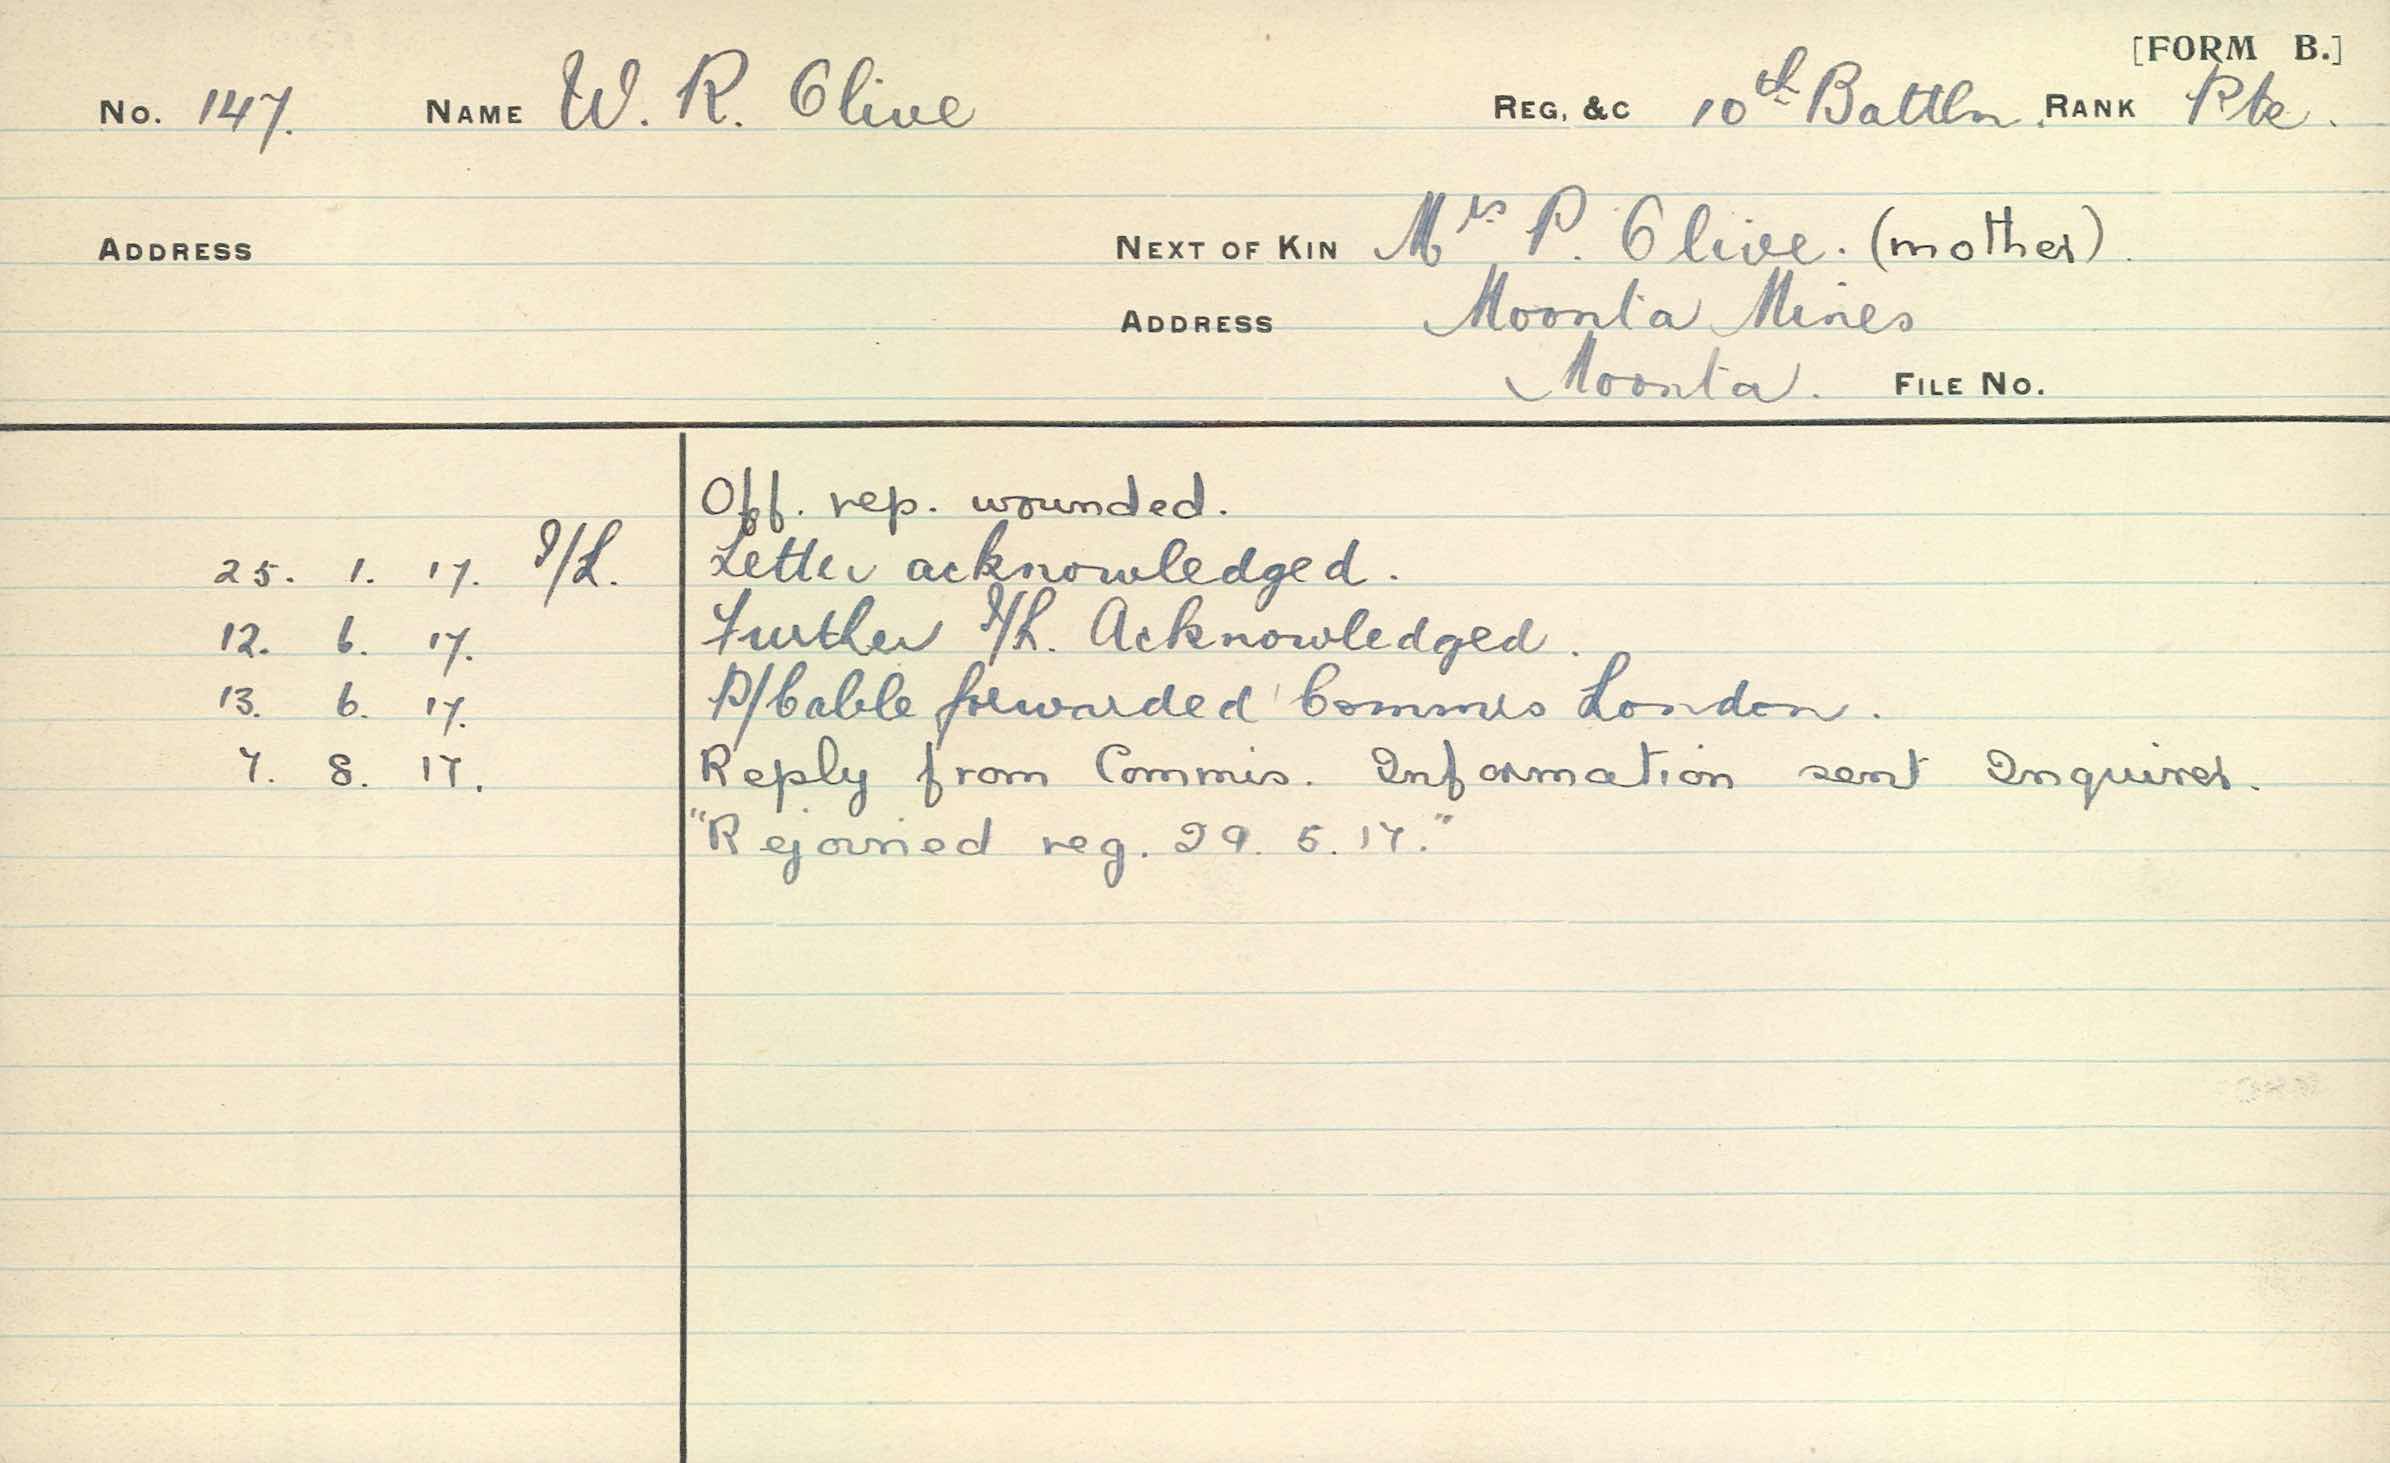 [FORM B.]
No. 147. NAME W. R. Clive REG, &C 10th Battln. RANK Pte.
ADDRESS NEXT OF KIN Mrs P. Clive. (mother).
ADDRESS Moonta Mines
Moonta. FILE NO.
Off. rep. wounded.
25. 1. 17. I/L. Letter acknowledged.
12. 6. 17. Further I/L. Acknowledged.
13. 6. 17. P/Cable forwarded Commis London.
7. 8. 17. Reply from Commis. Information sent Inquirer.
"Rejoined reg. 29. 5. 17."